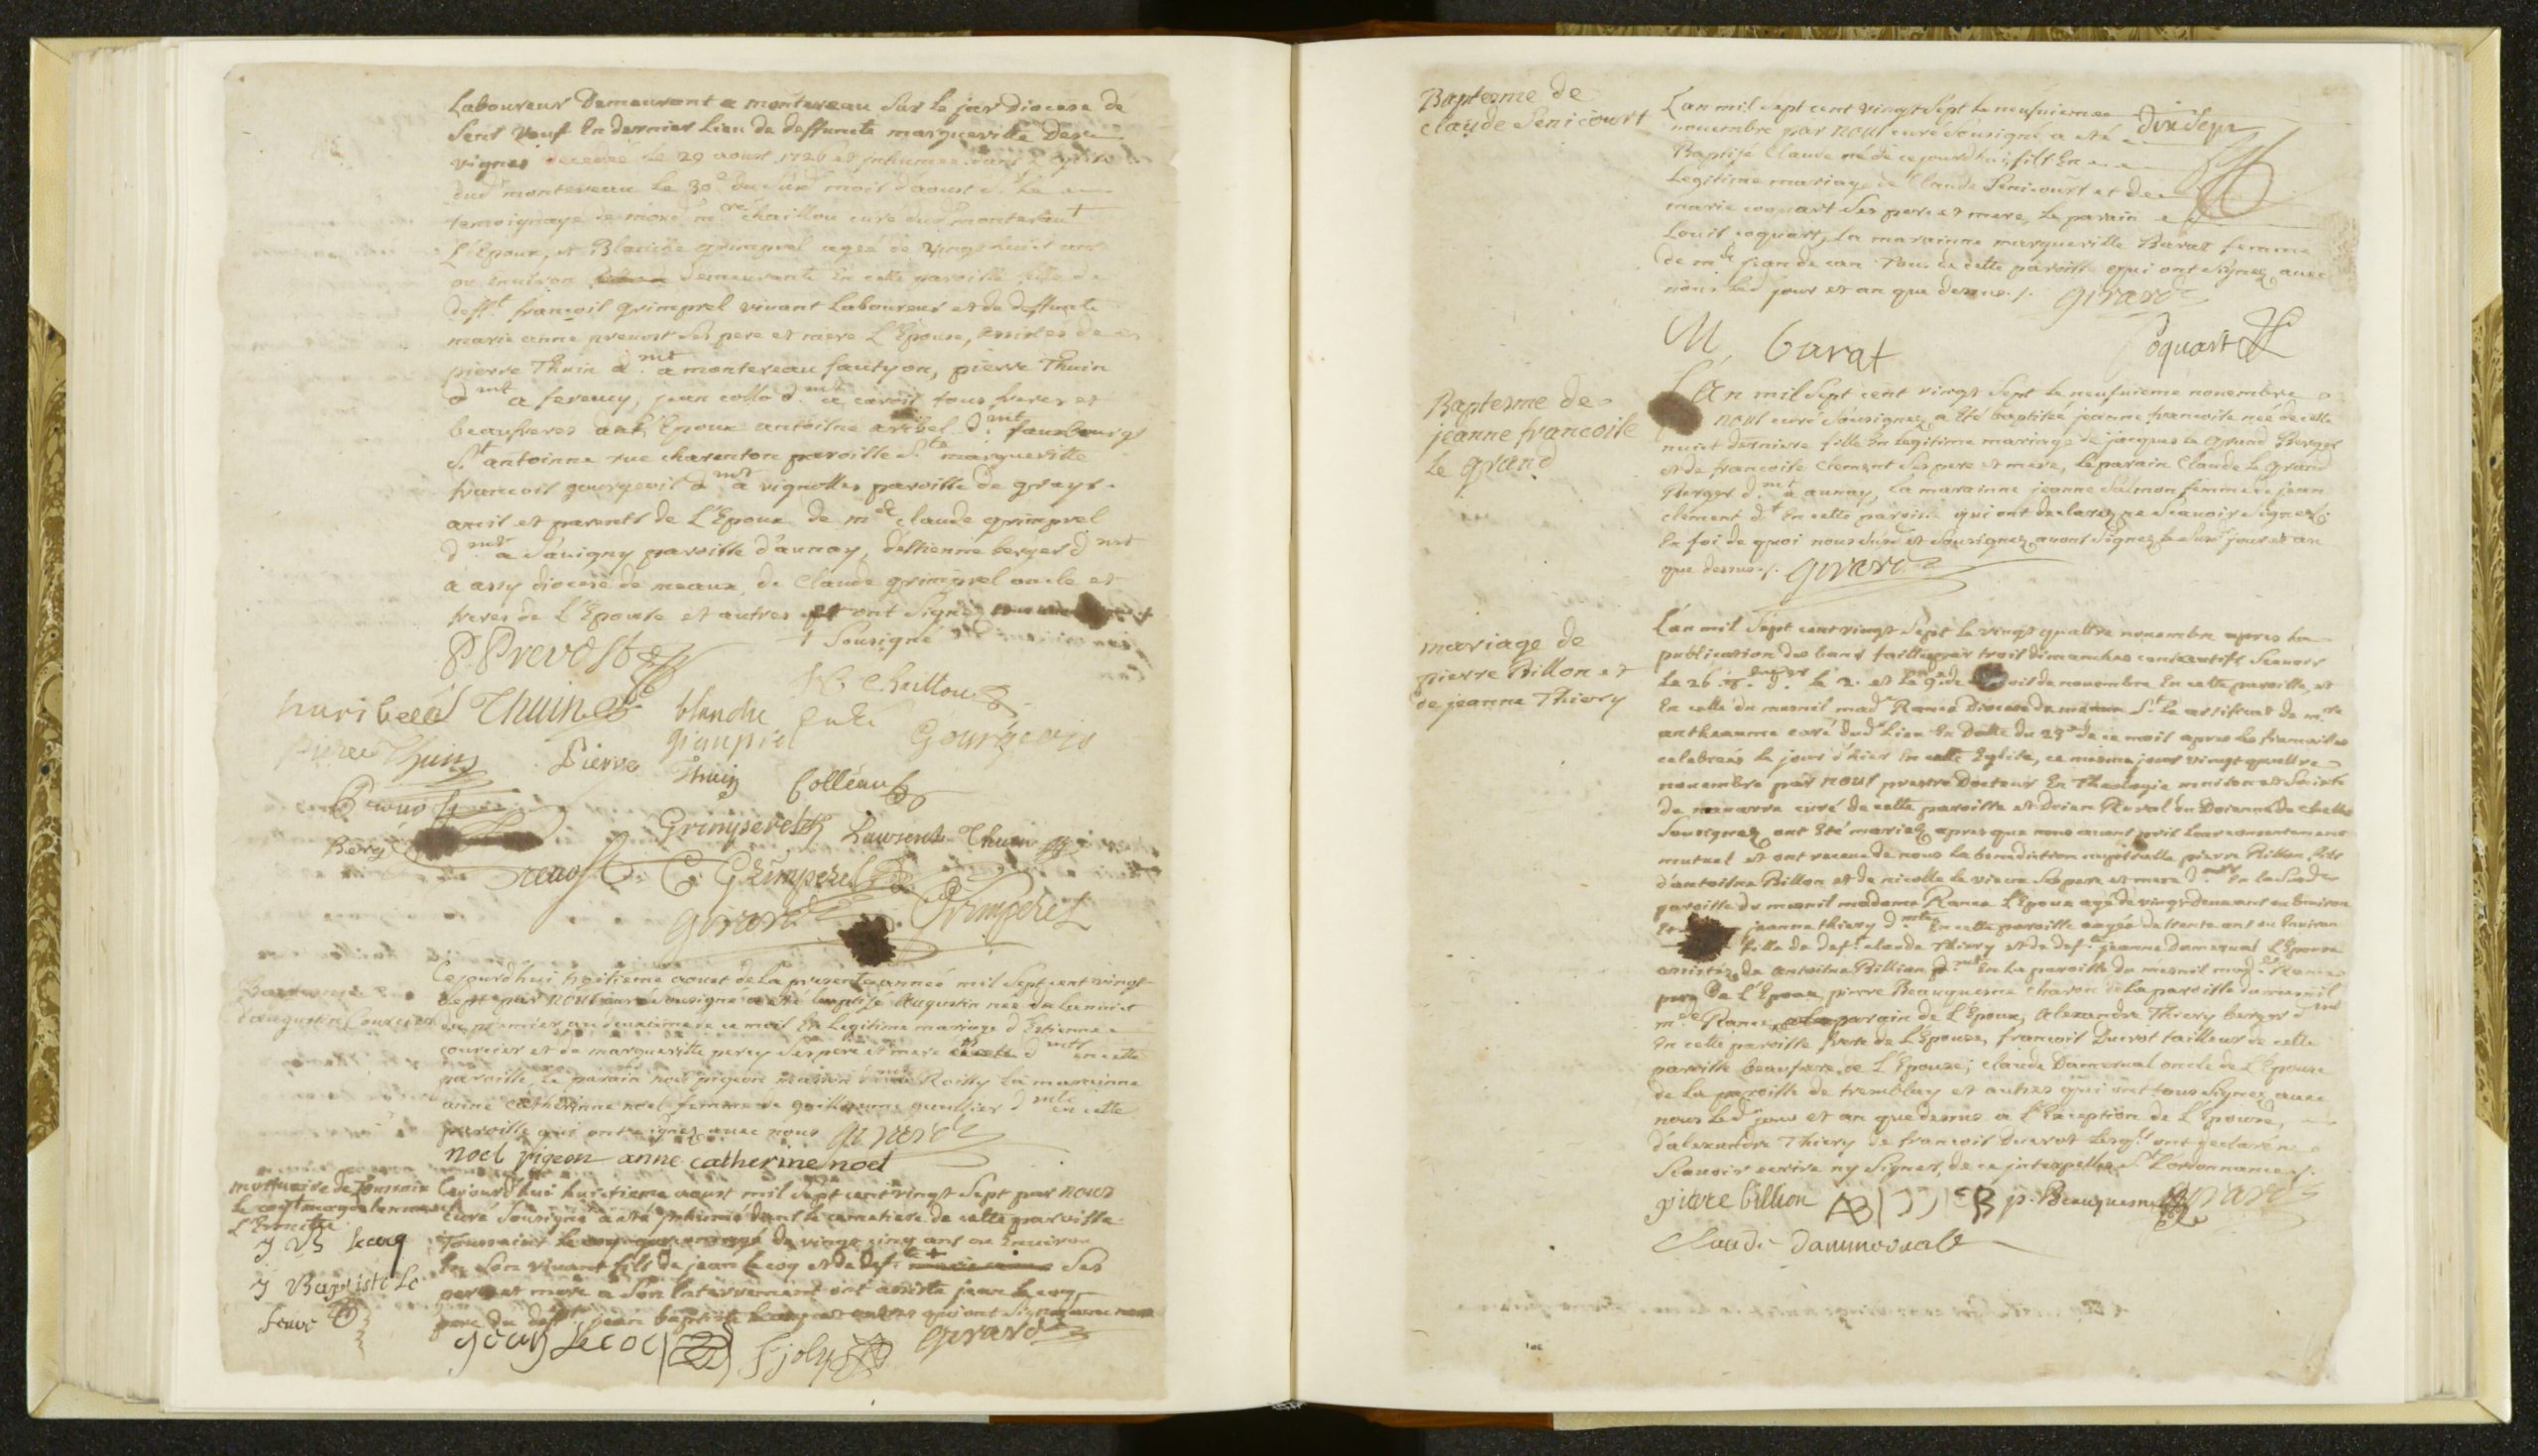 Laboureur Demeurant a montereau sur le jar diocese de
Sens veuf En dernier Lieu de deffuncte margueritte Des
vignes decedeé le 29 aoust 1726 et inhumée dans l'Eglise
dud montereau le 30e du Sud mois d'aoust st. le
temoignage de mre chaillou curé dud montereau +
L'Epoux, et Blanche grimprel ageé de vingt huit ans
ou environ demeurante En cette paroisse fille de
defft. françois grimprel vivant Laboureur et de deffuncte
marie anne prevost Ses pere et mere L'Epouse, assistés de
pierre Thuin d.mt a montereau fautyon, pierre Thuin
d.mt a forcuy, jean collo d.mt a tous freres et
beaufreres de L'Epoux antoine aribel d.mt fauxbourg
St antoinne rue charenton paroisse Ste margueritte
francois gourgeois d.mt a vignolles paroisse de grays
amis et parents de L'Epoux de mde claude grimprel
d.mt a Savigny paroisse d'aunay, d'Estienne berger d.mt
a assy diocese de meaux, de Claude grimprel oncle et
freres de L'Epouse et autres qui ont Signé
+ Sousigné
P. Prevost
Chaillou
haribeel Thuin blanche
grimprel Gourgeois
Pierre Thuin Pierre Thuin Colleau
Prevost
Grimperel Laurent Thuin
Berger
Prevost C. Grimperel
Girard Grimperel
Baptesme
d'augustin Courcier
Cejourdhui huitieme aoust de La presente anneé mil Sept cent vingt
Sept par nous curé Sousigné a eté baptisé Augustin né de La nuit
du premier au deuxieme de ce mois En Legitime mariage d'Estienne
courcier et de margueritte percy Ses pere et mere d.mts en cette
paroisse, Le parain noel pigeon masson d.mt a Roissy La marainne
anne catherinne noel femme de guillaume gaultier d.mte en cette
paroisse qui ont signez avec nous Girard
noel pigeon anne catherine noel
mortuaire de Toussaint
le coq
L'Ermitte
J B Lecoq
J Baptiste Le
feuve
Cejourd'hui huictieme aoust mil Sept cent vingt Sept par nous
curé Sousigné a eté Inhumé dans le cemetiere de cette paroisse
Toussaint le coq de vingt cinq ans ou Environ
En Son vivant fils de jean le coq et de defte + Ses
pere et mere a Son Interrement ont assisté jean le coq
pere du defft. jean baptiste le coq et autres qui ont Signez avec nous
jean Lecoq F joly Girard
Baptesme de
claude Senicourt
L'an mil sept cent vingt Sept le neufvieme
novembre par nous curé Sousigné a eté
Dix Sept
Baptisé Claude né de cejourdhui fils En
Legitime mariage de Claude Senicourt et de
marie coquart Ses pere et mere, Le parain
Louis coquart, La marainne margueritte Barat femme
de mde jean de can tous de cette paroisse qui ont Signez avec
nous Led jour et an que dessus ./. Girard
M. barat Coquart
Baptesme de
jeanne francoise
Le grand
L'An mil Sept cent vingt Sept le neufvieme novembre
nous curé Sousignez a Eté baptiseé jeanne francoise neé de cette
nuit derniere fille En Legitime mariage de jacques Le grand Berger
et de francoise Clement Ses pere et mere, Le parain Claude Le grand
Berger d.mt a aunay, La marainne jeanne Salmon femme de jean
clement d.t En cette paroisse qui ont declarez ne Scavoir Signer
En foi de quoi nous Susd et Sousignez avons Signez le Susd jour et an
que dessus ./. Girard
mariage de
pierre Billon et
de jeanne Thiery
L'an mil Sept cent vingt Sept le vingt quattre novembre apres La
publication des bans faitte par trois dimanches consecutifs Scavoir
Le 26 le 2. et Le 9e de mois de novembre En cette paroisse, et
En celle du mesnil made Rance Diocese de St le certificat de mre
antheaume curé dud Lieu En Datte du 23e de ce mois apres les fiancailles
celebreés le jour d'hier En cette Eglise, ce mesme jour vingt quattre
novembre par nous prestre Docteur En Theologie maison et Societé
de navarre curé de cette paroisse et Doien Rural du Doienné de chelles
Sousignez ont Eté mariez apres que nous avons pris leur consentement
mutuel et ont receue de nous La benediction nuptialle pierre Billon fils
d'antoine Billon et de nicolle le vieux Ses pere et mere d.mts en la Susde
paroisse du mesnil madame Rance L'Epoux agé de vingt deux ans ou Environ
Et jeanne thiery d.mte En cette paroisse ageé de trente ans ou Environ
fille de deft. claude Thiery et de defte jeanne Damesval L'Epouse
assistéz de antoine Billion d.mt En La paroisse du mesnil made Rance
pere de L'Epoux, pierre Beauquesne charon de La paroisse du mesnil
mde Rance parain de L'Epoux, alexandre Thiery berger d.mt
En cette paroisse frere de L'Epouse, francois Ducrot tailleur de cette
paroisse beaufrere de L'Epouse; claude Damesval oncle de L'Epouse
de La paroisse de tremblay et autres qui ont tous Signez avec
nous Led jour et an que dessus a L'Exception de L'Epouse,
d'alexandre Thiery de francois Ducrot Lesqls ont declaré ne
Scavoir ecrire ny Signer, de ce interpellez St L'ordonnance ./.
pierre billion AB p. Beauquesne Girard
Claude dammesvale